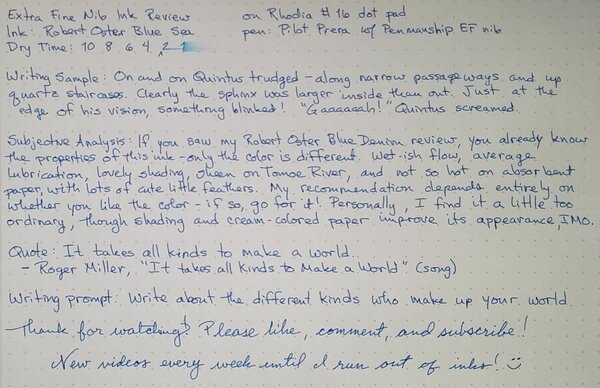 Extra Fine Nib Ink Review on Rhodia #16 dot pad
Ink: Robert Oster Blue Sea pen: Pilot Prera w/ Penmanship EF nib
Dry Time: 10 8 6 4 2 1
Writing Sample: On and on Quintus trudged - along narrow passageways and up
quartz staircases. Clearly the sphinx was larger inside than out. Just at the
edge of his vision, something blinked! "Gaaaaaah!" Quintus screamed.
Subjective Analysis: If you saw my Robert Oster Blue Denim review, you already know
the properties of this ink - only the color is different. Wet-ish flow, average
lubrication, lovely shading, sheen on Tomoe River, and not so hot on absorbent
paper, with lots of cute little feathers. My recommendation depends entirely on
whether you like the color - if so, go for it! Personally, I find it a little too
ordinary, though shading and cream-colored paper improve its appearance, IMO.
Quote: It takes all kinds to make a world.
- Roger Miller, "It takes all Kinds to Make a World" (song)
Writing prompt: Write about the different kinds who make up your world.
Thank for watching! Please like, comment, and subscribe!
New videos every week until I run out of inks!